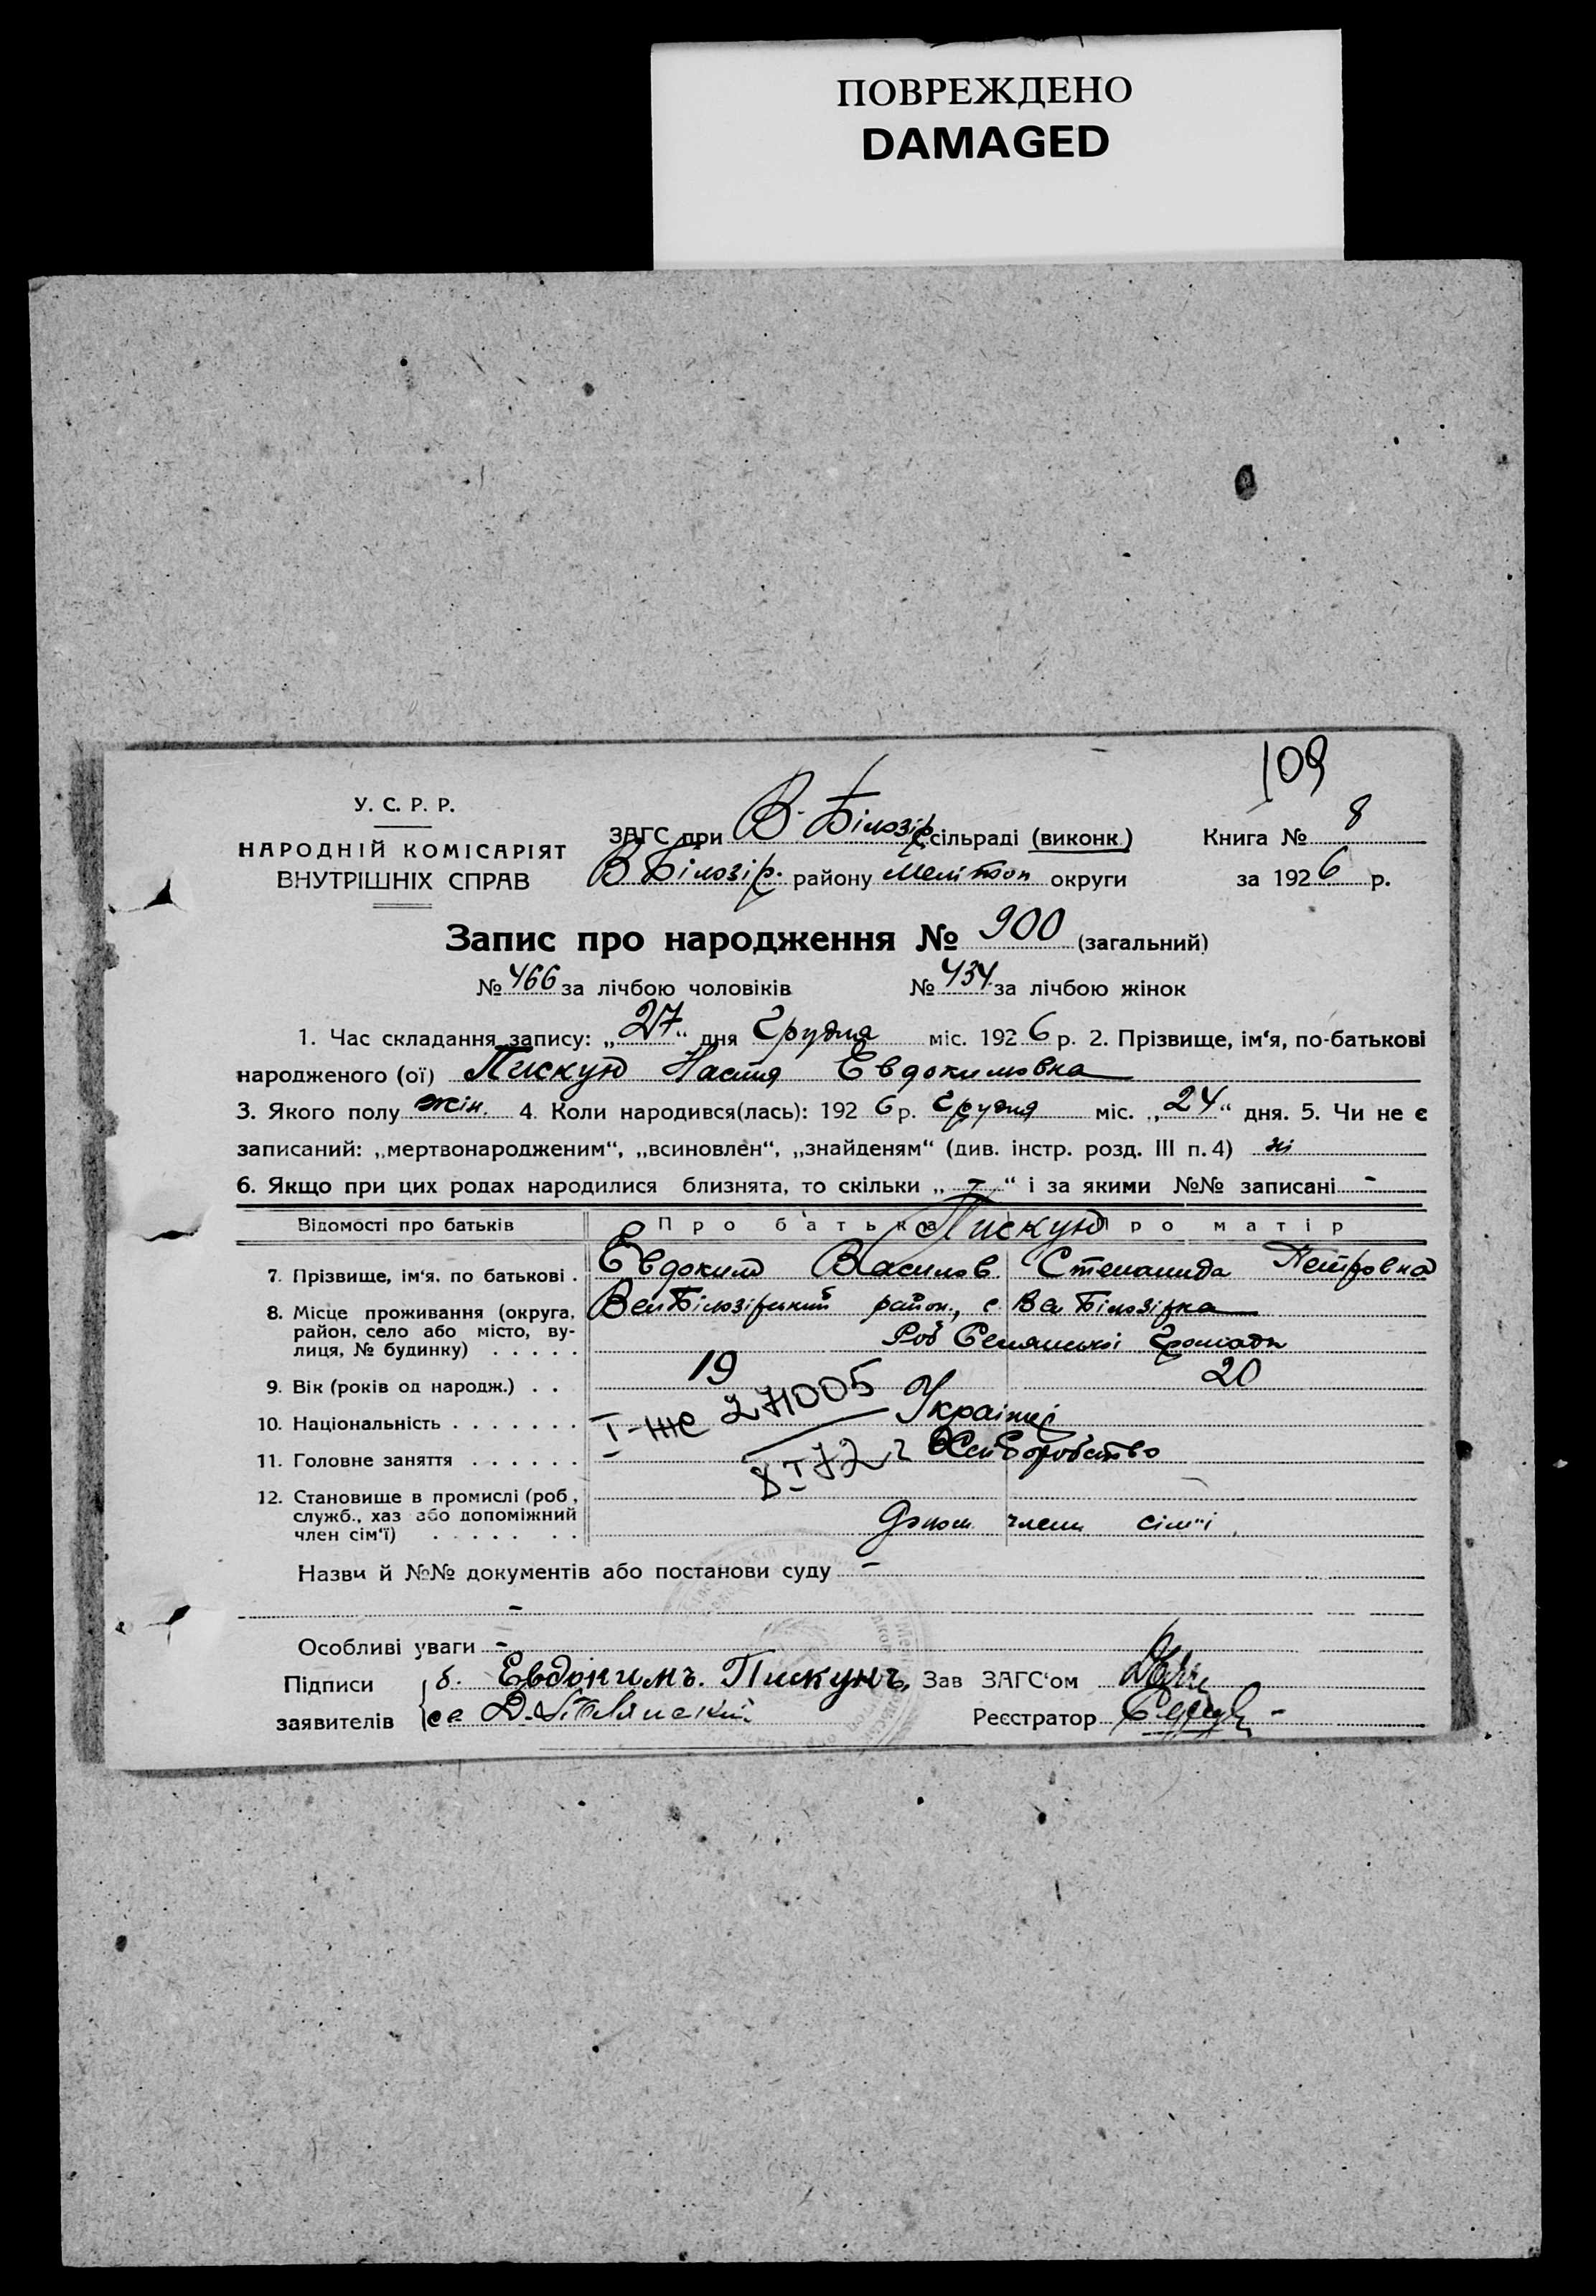 ПОВРЕЖДЕНО
DAMAGED
109
У. С. Р. Р.
НАРОДНІЙ КОМІСАРІЯТ
ВНУТРІШНІХ СПРАВ
ЗАГС при В. Білозір. сільраді (виконк.)
В Білозір. району Меліитоп округи
Книга № 8
за 1926 р.
Запис про народження № 900 (загальний)
№ 466 за лічбою чоловіків № 434 за лічбою жінок
1. Час складання запису: „27“ дня Грудня міс. 1926 р. 2. Прізвище, ім‘я, по-батькові
народженого (ої) Пискун Настя Евдокимовна
3. Якого полу жін. 4. Коли народився(лась): 1926 р. Грудня міс. „24“ дня. 5. Чи не є
записаний: „мертвонародженим“, „всиновлен“, „знайденям“ (див. інстр. розд. III п. 4) ні
6. Якщо при цих родах народилися близнята, то скільки „-“ і за якими №№ записані -
Відомості про батьків Про батька Про матір
Пискун
7. Прізвище, ім‘я, по батькові . Евдоким Василов Степанида Петровна
8. Місце проживання (округа, район, село або місто, вулиця, № будинку) . . . . . Вел Білозірський район., с. Вел Білозірка
Роб Селянської Громади
9. Вік (років од народж.) . . 19 20
10. Національність . . . . . . . Українці
I-ЖС 271005
8 I 72 г
11. Головне заняття . . . . . . Хліборобство
12. Становище в промислі (роб., служб., хаз або допоміжний член сім‘ї) . . . . . . . Допом. члени сім"ї
Назви й №№ документів або постанови суду -
-
Особливі уваги -
Підписи заявителів
б. Евдокимъ. Пискунъ.
Зав ЗАГС‘ом
Реєстратор